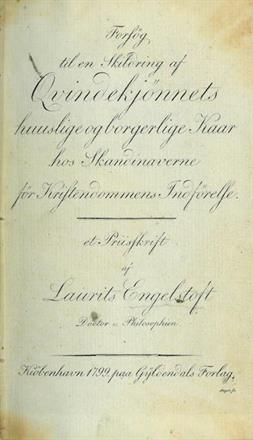 Forsög
til en Skildring af
Qvindekjönnets
huuslige og borgerlige Kaar
hos Skandinaverne
för Kristendommens Indförelse.
et Priisskrift
af
Laurits Engelstoft
Doctor i Philosophien
Kiöbenhavn 1799, paa Gyldendals Forlag.